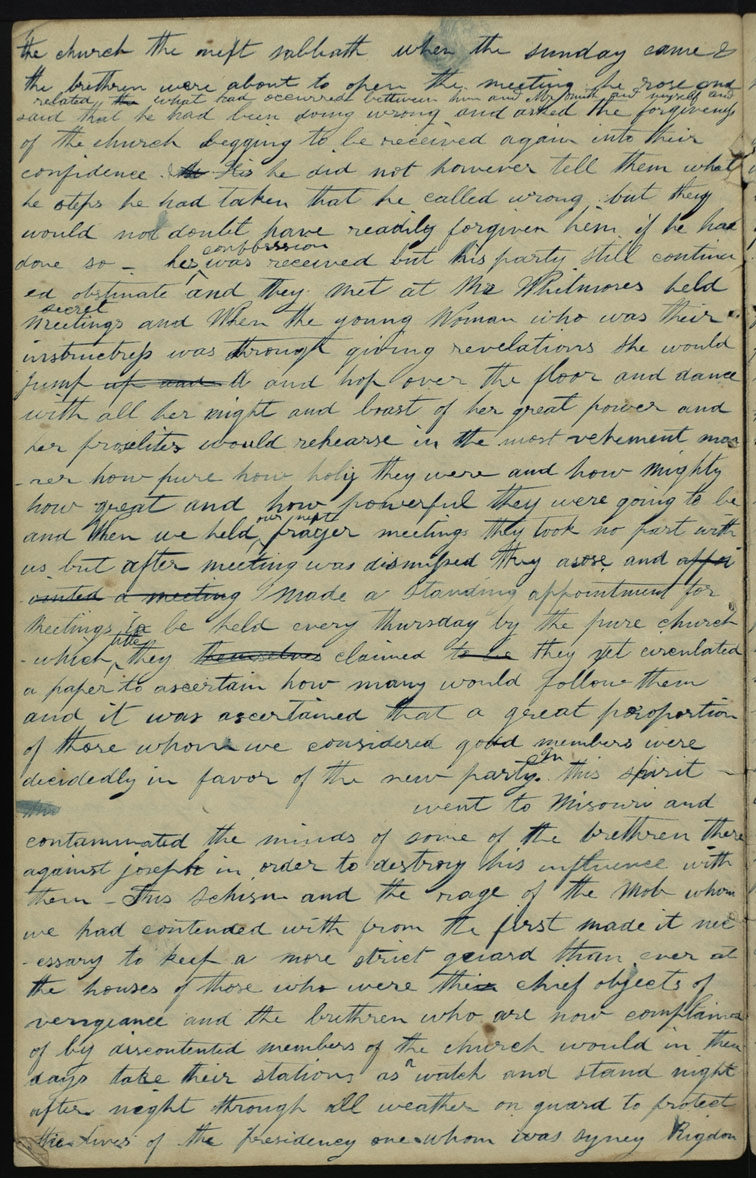 the church the next sabbath when the sunday came &
the brethren were about to open the meeting he rose and
related the what had occurred between him and Mr Smith and myself and
said that he had been doing wrong and asked the forgiveness
of the church begging to be received again into their
confidence. he did not however tell them what
he steps he had taken that he called wrong but they
would not doubt have readily forgiven him if he had
confession
done so — his was received but his party still continu
ed obstinate and they met at Mr Whitmores held
secret
meetings and When the young Woman who was their
instructress was through giving revelations she would
jump up and and hop over the floor and dance
with all her might and boast of her great power and
her proselites would rehearse in the most vehement man
-ner how pure how holy they were and how mighty
how great and how powerful they were going to be
our next
and When we held prayer meetings they took no part with
us but after meeting was dismissed they arose and appoi
-inted a meeting made a standing appointment for
Meetings to be held every thursday by the pure church
title
-which they themselves claimed to be they yet circulated
a paper to ascertain how many would follow them
and it was ascertained that a great proportion
of those whom we considered good members were
decidedly in favor of the new party. this spirit
went to Misouri and
contaminated the minds of some of the brethren there
against joseph in order to destroy his influence with
them — This schism and the rage of the Mob whom
we had contended with from the first made it nec
-essary to keep a more strict guard than ever at
the houses of those who were their chief objects of
vengeance and the brethren who are now complained
of by discontented members of the church would in them
days take their stations as watch and stand night
after night through all weather on guard to protect
the lives of the presidency one whom was syney Rigdon